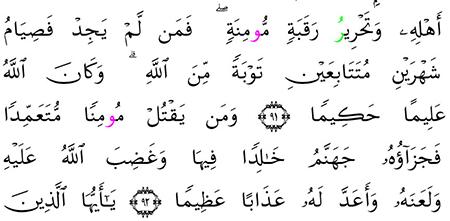 أَهْلِهِۦ وَتَحْرِيرُ رَقَبَةٖ مُّومِنَةٖۖ فَمَن لَّمْ يَجِدْ فَصِيَامُ
شَهْرَيْنِ مُتَتَابِعَيْنِ تَوْبَةٗ مِّنَ اَللَّهِۗ وَكَانَ اَللَّهُ
عَلِيمًا حَكِيمٗا ٩١ وَمَن يَقْتُلْ مُومِنٗا مُّتَعَمِّدٗا
فَجَزَآؤُهُۥ جَهَنَّمُ خَٰلِدٗا فِيهَا وَغَضِبَ اَللَّهُ عَلَيْهِ
وَلَعَنَهُۥ وَأَعَدَّ لَهُۥ عَذَابًا عَظِيمٗا ٩٢ يَٰٓأَيُّهَا اَلَّذِينَ